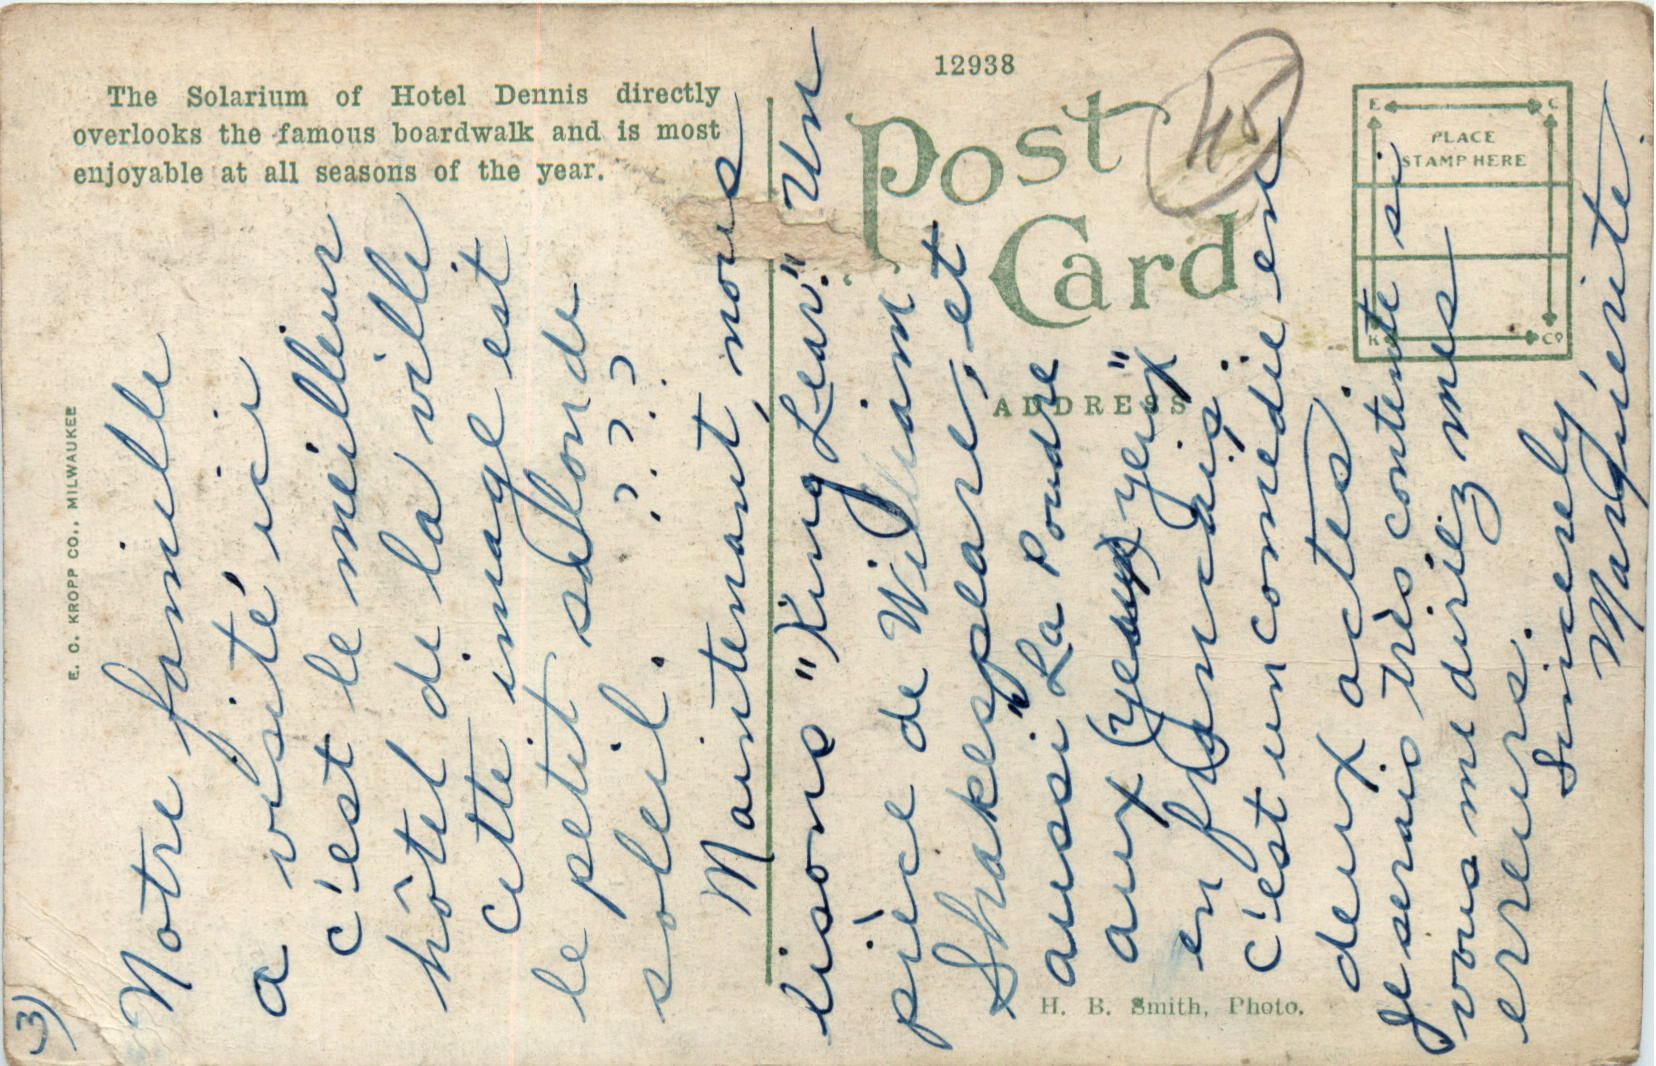 The Solarium of Hotel Dennis directly
overlooks the famous boardwalk and is most
enjoyable at all seasons of the year.
12938
Post
Card
45
PLACE
STAMP HERE
E C
K Co
ADDRESS
E. C. KROPP CO., MILWAUKEE
H. B. Smith, Photo.
3)
Notre famille
a visité ici
c'est le meilleur
hôtel de la ville
Cette image est
le petit salon de
soleil. ? ? ?
Maintenant, nous
lisons "King Lear." Un
pièce de William
Shakespeare, et
aussi "La Poudre
aux yeux"
en français,
c'est un comedie en
deux actes.
Je serais très contente si
vous me diriez mes
erreurs.
Sincerely
Marguerite.